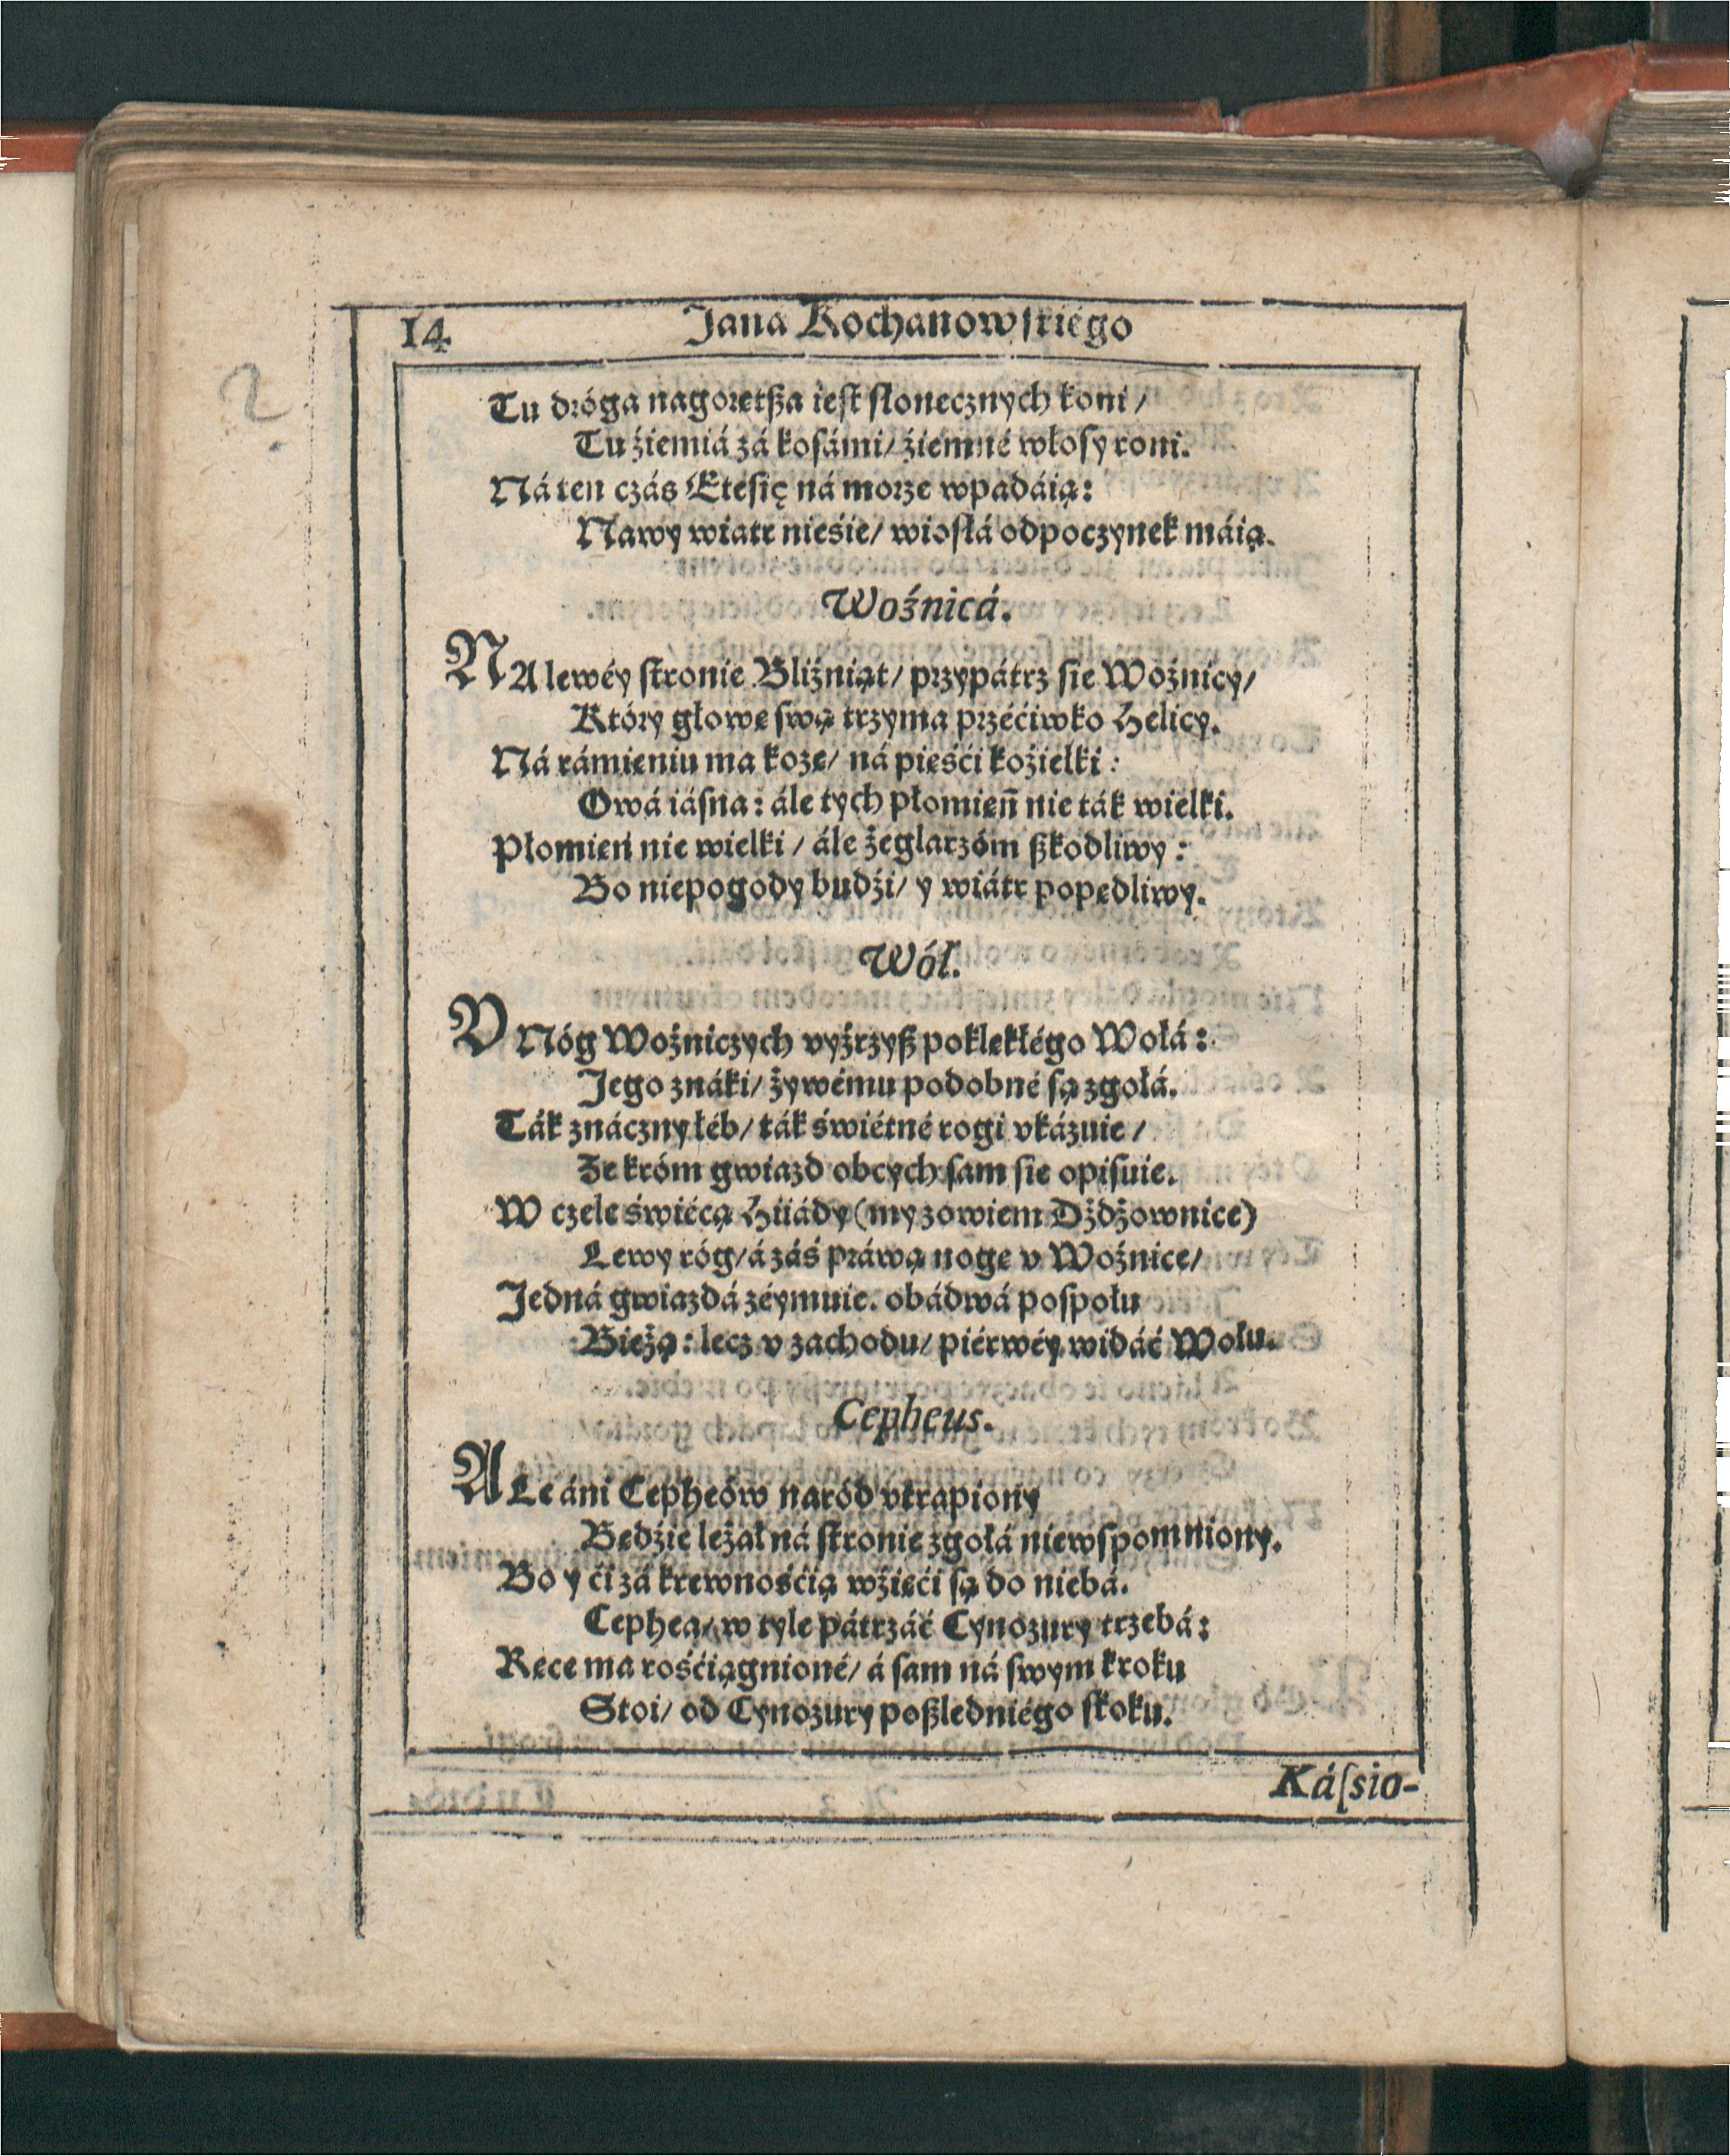 14 Jana Kochanowſkiégo
Tu dróga nagorętßa ieſt ſłonecznych koni /
Tu źiemiá zá koſámi/ źiemné włoſy roni.
Ná ten czás Eteſię ná morze wpadáią:
Nawy wiatr nieśie/ wioſłá odpoczynek máią.
Woźnicá.
NA lewéy ſtronie Bliźniąt/ przypátrz ſie Woźnicy/
Który głowę ſwą trzyma przéćiwko Helicy.
Ná rámieniu ma kozę/ ná pięśći koźielki :
Owá iáſna : ále tych płomień nie ták wielki.
Płomień nie wielki / ále żeglarzóm ßkodliwy :
Bo niepogody budźi/ y wiátr popędliwy.
Wół.
V Nóg Woźniczych vyźrzyß poklękłégo Wołá :
Jego znáki/ żywému podobné ſą zgołá.
Ták znáczny łéb/ ták świétné rogi vkázuie /
Że króm gwiazd obcych ſam ſie opiſuie.
W czele świécą Hiiády (my zowiem Dżdżownice)
Lewy róg/ á záś práwą nogę v Woźnice/
Jedná gwiazdá zéymuie. obádwá poſpołu
Bieżą : lecz v zachodu/ piérwéy widáć Wołu.
Cepheus.
ALe áni Cepheów naród vtrapiony
Będźie leżał ná ſtronie zgołá niewſpomniony.
Bo y ći zá krewnośćią wźięći ſą do niebá.
Cephea/ w tyle pátrzáć Cynozury trzebá :
Ręce ma rośćiągnioné/ á ſam ná ſwym kroku
Stoi/ od Cynozury poßledniégo ſkoku.
Káſsio-